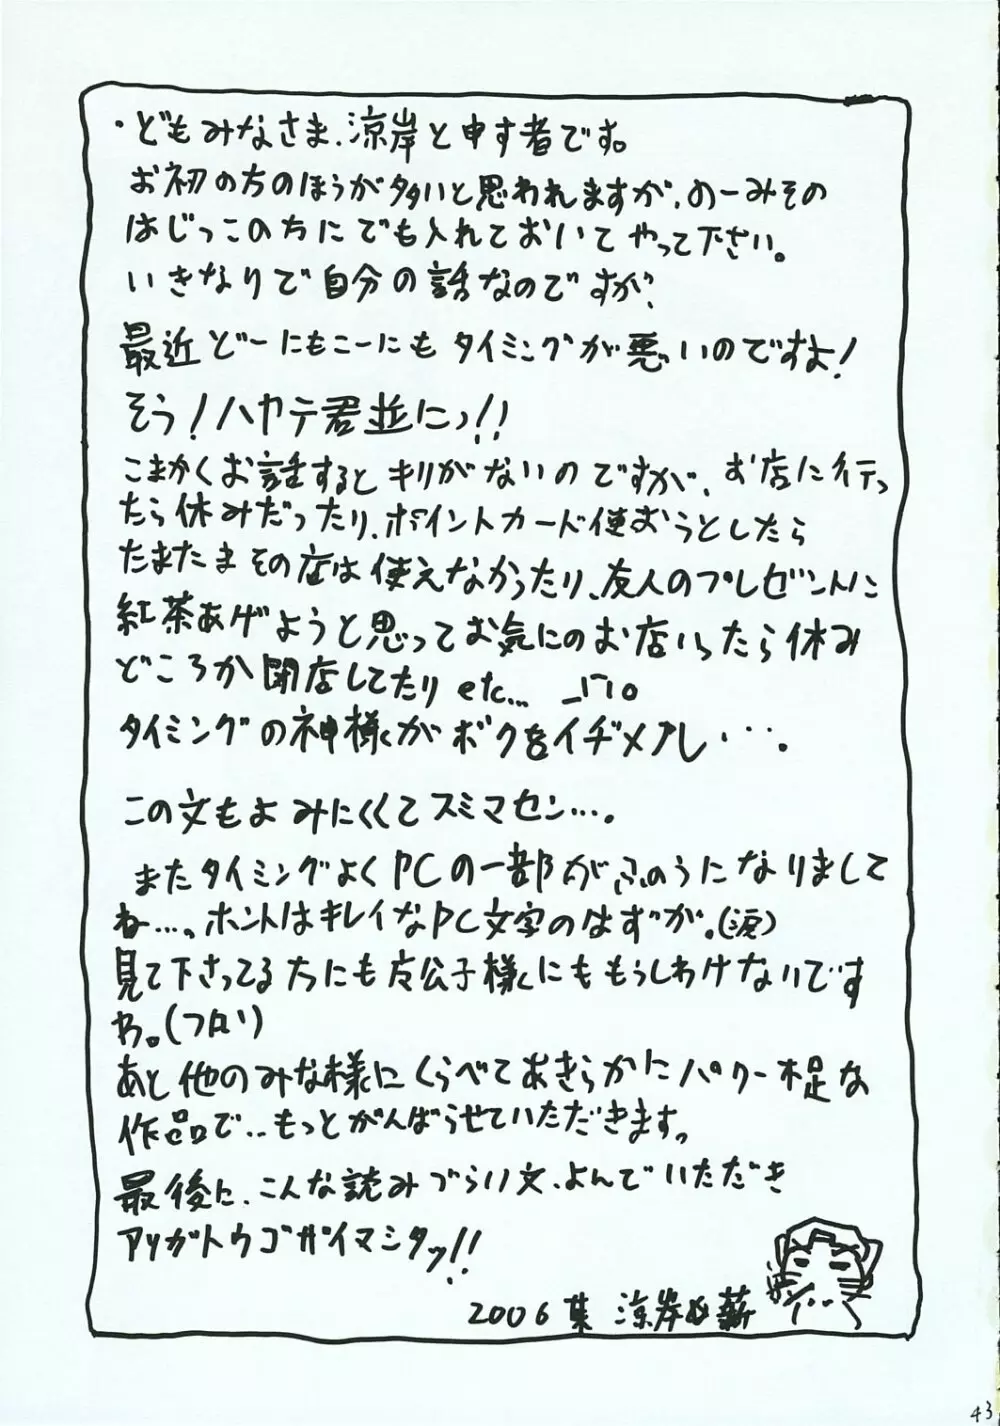 ・どもみなさま、涼岸と申す者です。
お初の方のほうが多いと思われますが、のーみその
はじっこの方にでも入れておいてやって下さい。
いきなりで自分の話なのですが、
最近どーにもこーにもタイミングが悪いのですよ!
そう!ハヤテ君並にっ!!
こまかくお話するとキリがないのですが、お店に行っ
たら休みだったり、ポイントカード使おうとしたら
たまたまその店は使えなかったり、友人のプレゼントに
紅茶あげようと思ってお気にのお店いったら休み
どころか閉店してたり etc... _| ̄|○
タイミングの神様がボクをイヂメル・・・。
この文もよみにくくてスミマセン…。
またタイミングよくPCの一部がふのうになりまして
ね…、ホントはキレイなPC文字のはずが。(涙)
見て下さってる方にも友公子様にももうしわけないです
わ。(フロイ)
あと他のみな様にくらべてあきらかにパワー不足な
作品で‥もっとがんばらせていただきます。
最後に、こんな読みづらい文、よんでいただき
アリガトウゴザイマシタッ!!
2006 葉 涼岸 薪
43